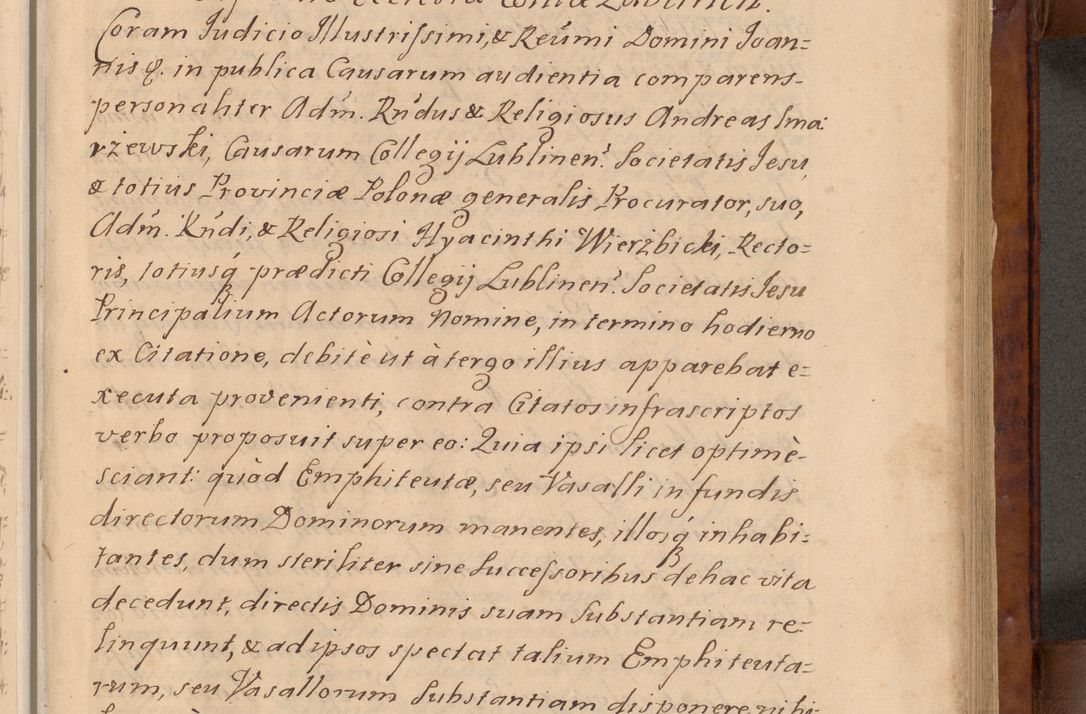 Coram Judicio Illustrissimi, & Reúmi Domini Joan=
nis q. in publica Causarum audientia comparens
personaliter Adm̃. Rñdus & Religiosus Andreas Ima
rzewski, Causarum Collegij Lublinen? Societatis Jesu,
& totius Provinciæ Polonæ generalis Procurator, suo,
Adm̃. Rñdi, & Religiosi Hyacinthi Wierżbicki, Recto=
ris, totiusq́ prædicti Collegij Lublinen? Societatis Jesu
Principalium Actorum Nomine, in termino hodierno
ex Citatione, debitè ut à tergo illius apparebat e=
xecuta provenienti, contra Citatos infrascriptos
verbo proposuit super eo: Quia ipsi licet optimè
sciant: quòd Emphiteutæ, seu Vasalli in fundis
directorum Dominorum manentes, illosq́ inhabi=
tantes, dum steriliter sine Successoribus de hac vita
decedunt, directis Dominis suam Substantiam re=
linquunt, & ad ipsos spectat talium Emphiteuta=
rum, seu Vasallorum Substantiam disponere nihi=